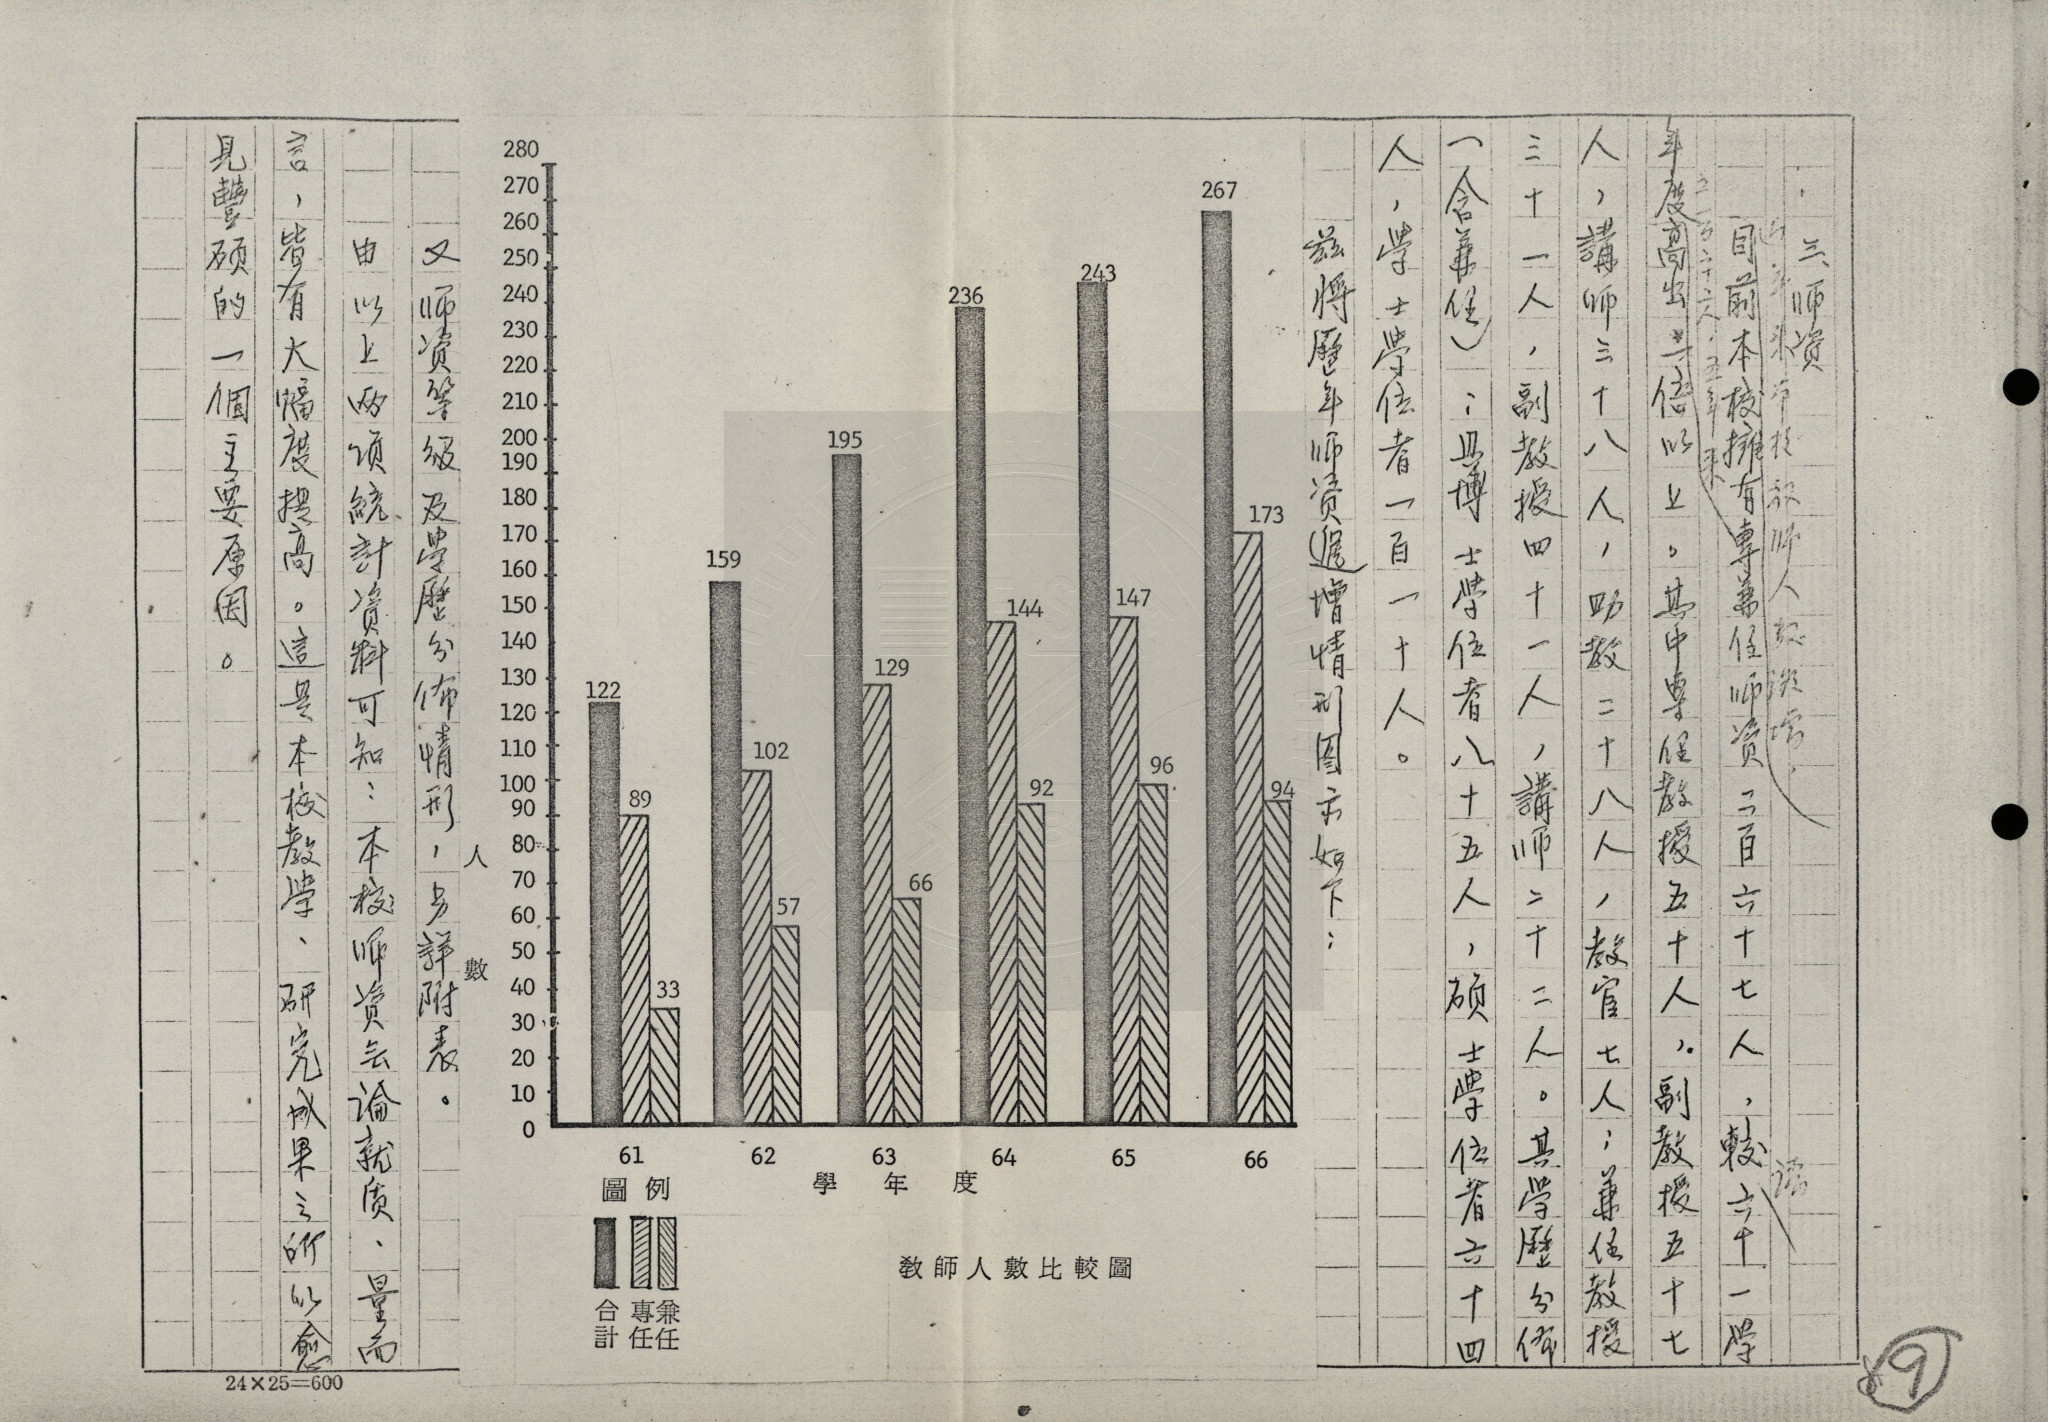 三、師資
目前本校擁有專兼任師資二百六十七人，較六十一學
年度高出一倍以上。其中專任教授五十人，副教授五十七
人，講師三十八人，助教二十八人，教官七人；兼任教授
三十一人，副教授四十一人，講師二十二人。其學歷分佈
（含兼任）：具博士學位者八十五人，碩士學位者六十四
人，學士學位者一百一十人。
茲將歷年師資遞增情形圖示如下：
280
270
260
250
240
230
220
210
200
190
180
170
160
150
140
130
120
110
100
90
80
70
60
50
40
30
20
10
0
人數
122 89 33
159 102 57
195 129 66
236 144 92
243 147 96
267 173 94
61 62 63 64 65 66
學年度
圖例
合計
專任
兼任
教師人數比較圖
又師資等級及學歷分佈情形，另詳附表。
由以上兩項統計資料可知：本校師資無論就质、量而
言，皆有大幅度提高。這是本校教學、研究成果之所以愈
見豐碩的一個主要原因。
24×25=600
9